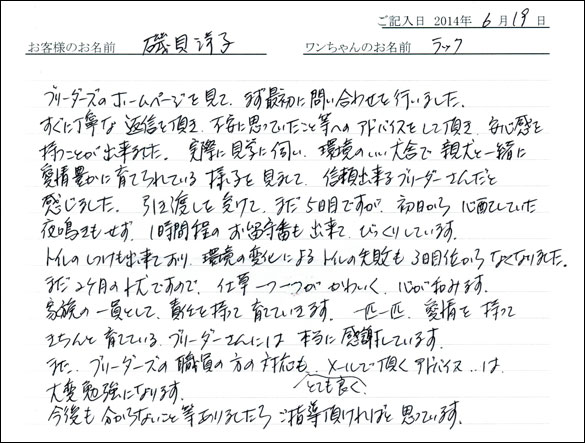 ご記入日 2014年 6月19日
お客様のお名前 磯貝洋子 ワンちゃんのお名前 ラック
ブリーダーズのホームページを見て、まず最初に問い合わせを行いました。
すぐに丁寧な返信を頂き、不安に思っていたこと等へのアドバイスをして頂き、安心感を
持つことが出来ました。 実際に見学に伺い、環境のいい犬舎で親犬と一緒に
愛情豊かに育てられている様子を見まして、信頼出来るブリーダーさんだと
感じました。 引き渡しを受けて、まだ5日目ですが、初日から心配していた
夜鳴きもせず、1時間程のお留守番も出来て、びっくりしています。
トイレのしつけも出来ており、環境の変化によるトイレの失敗も3日目位からなくなりました。
まだ2ヶ月の子犬ですので、仕草一つ一つがかわいく、心が和みます。
家族の一員として、責任を持って育てていきます。 一匹一匹、愛情を持って
きちんと育てているブリーダーさんには本当に感謝しています。
また、ブリーダーズの職員の方の対応も、とても良く、メールで頂くアドバイス..は、
大変勉強になります。
今後も分からないこと等ありましたらご指導頂ければと思っています。